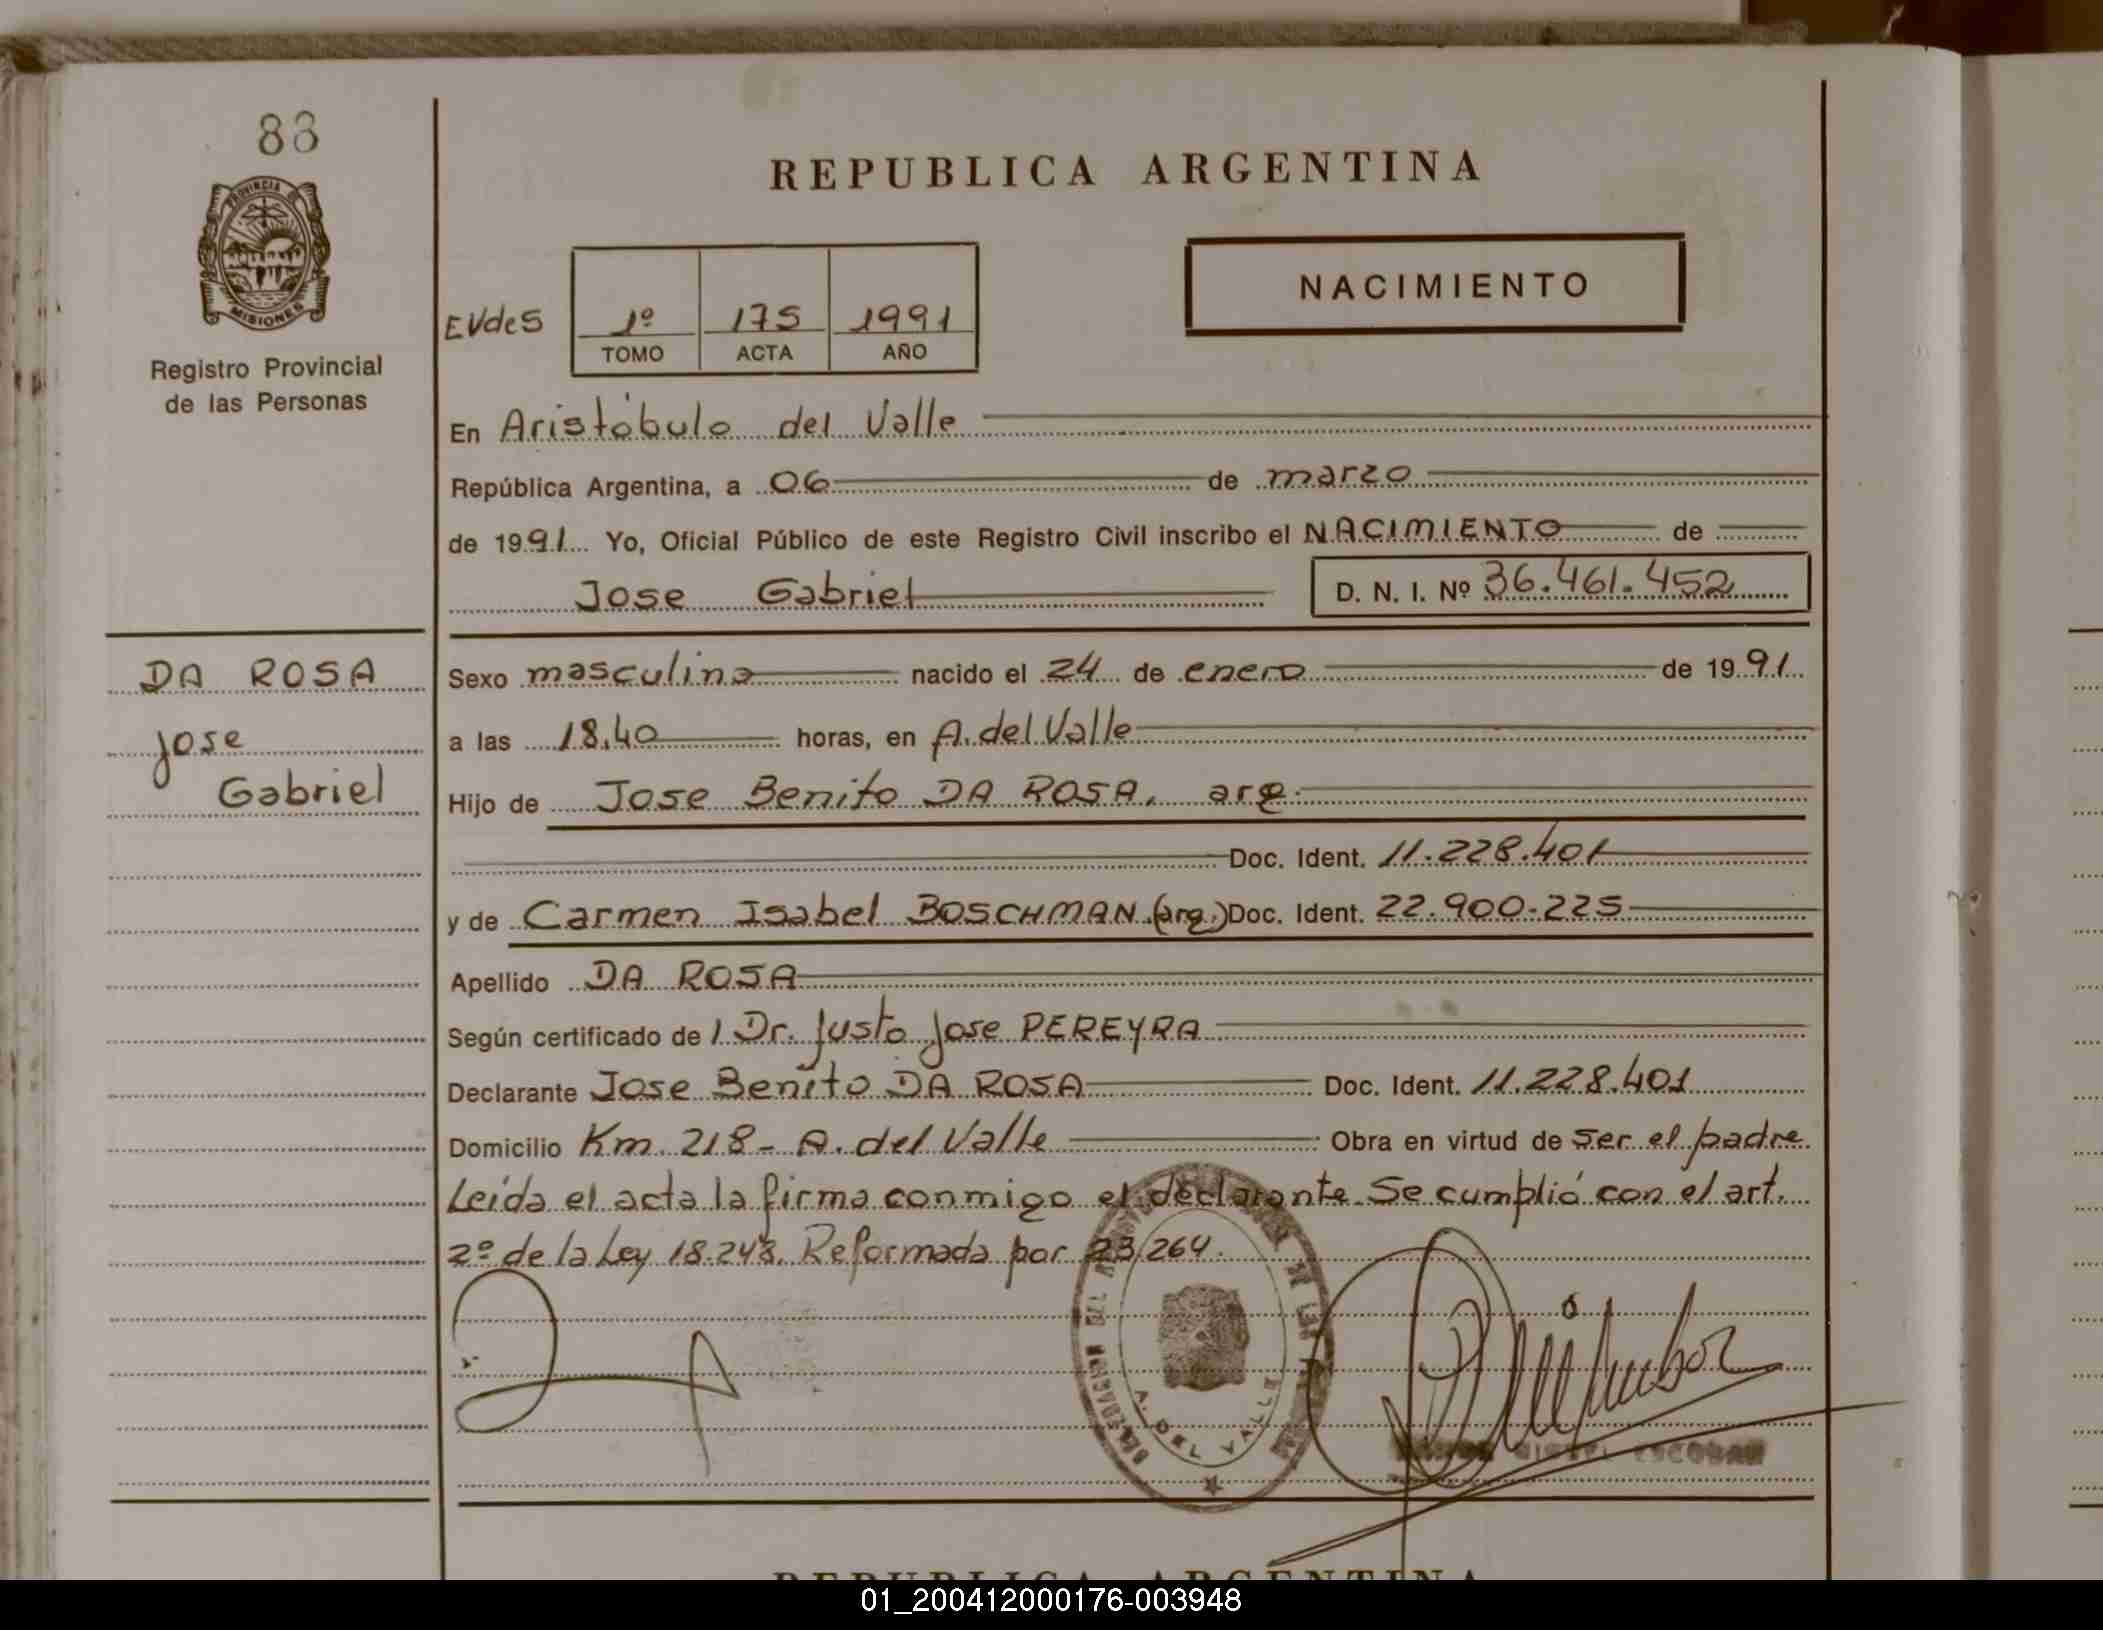 88
PROVINCIA
MISIONES
Registro Provincial
de las Personas
REPUBLICA ARGENTINA
NACIMIENTO
EVdeS
1º 175 1991
TOMO ACTA AÑO
En Aristóbulo del Valle
República Argentina, a 06 de marzo
de 1991 Yo, Oficial Público de este Registro Civil inscribo el NACIMIENTO de
Jose Gabriel D. N. I. Nº 36.461.452
DA ROSA
Jose
Gabriel
Sexo masculino nacido el 24 de enero de 1991
a las 18,40 horas, en A. del Valle
Hijo de Jose Benito DA ROSA, arg.
Doc. Ident. 11.228.401
y de Carmen Isabel BOSCHMAN (arg.) Doc. Ident. 22.900.225
Apellido DA ROSA
Según certificado de / Dr. Justo Jose PEREYRA
Declarante Jose Benito DA ROSA Doc. Ident. 11.228.401
Domicilio Km 218 - A. del Valle Obra en virtud de Ser el padre
Leída el acta la firma conmigo el declarante. Se cumplió con el art.
2º de la Ley 18.248. Reformada por 23.264.
A. DEL VALLE
MIGUEL ESCOBAR
REPUBLICA ARGENTINA
01_200412000176-003948